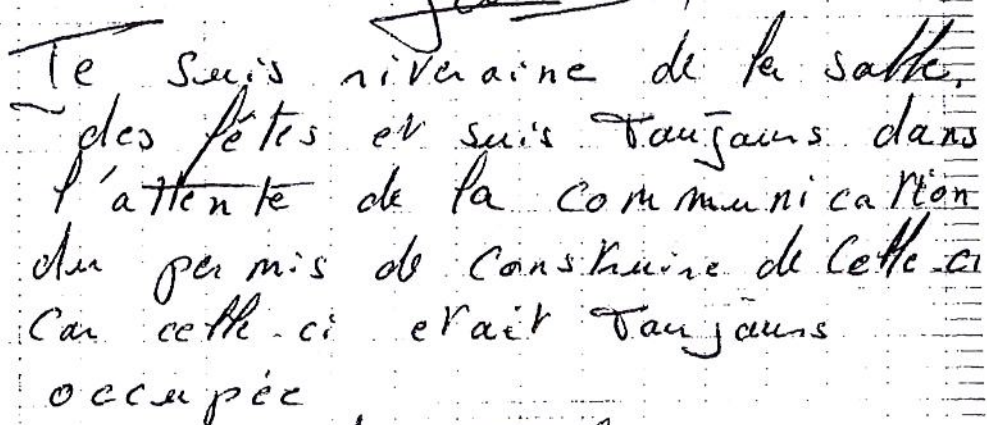 Je suis riveraine de la salle
des fêtes et suis toujours dans
l'attente de la communication
du permis de construire de celle-ci
Car celle-ci etait toujours
occupée